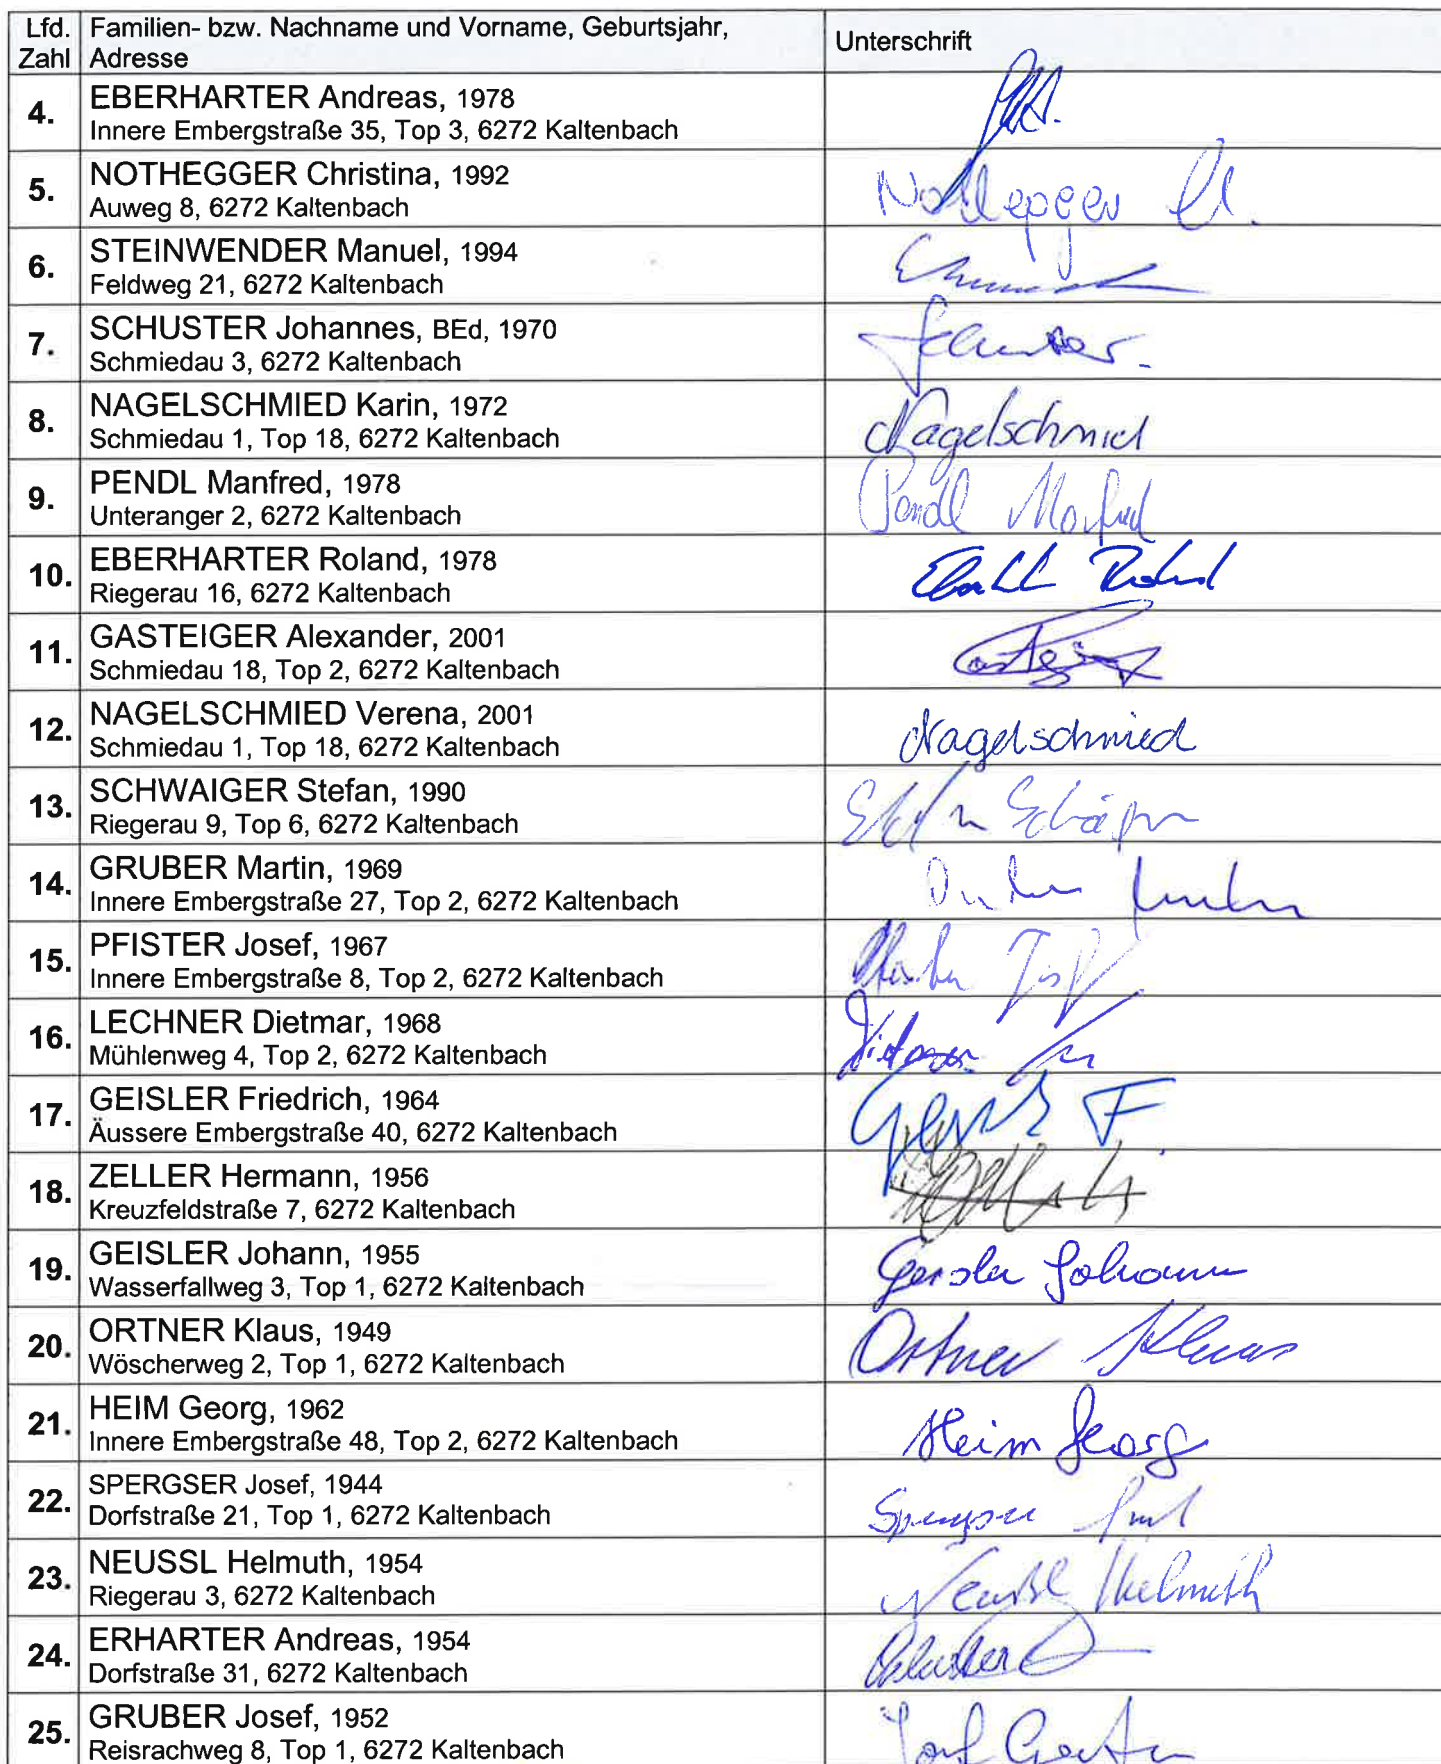 Lfd. Zahl | Familien- bzw. Nachname und Vorname, Geburtsjahr, Adresse | Unterschrift
4. EBERHARTER Andreas, 1978
Innere Embergstraße 35, Top 3, 6272 Kaltenbach
5. NOTHEGGER Christina, 1992
Auweg 8, 6272 Kaltenbach
Nothegger
6. STEINWENDER Manuel, 1994
Feldweg 21, 6272 Kaltenbach
7. SCHUSTER Johannes, BEd, 1970
Schmiedau 3, 6272 Kaltenbach
Schuster
8. NAGELSCHMIED Karin, 1972
Schmiedau 1, Top 18, 6272 Kaltenbach
Nagelschmied
9. PENDL Manfred, 1978
Unteranger 2, 6272 Kaltenbach
Pendl Manfred
10. EBERHARTER Roland, 1978
Riegerau 16, 6272 Kaltenbach
11. GASTEIGER Alexander, 2001
Schmiedau 18, Top 2, 6272 Kaltenbach
12. NAGELSCHMIED Verena, 2001
Schmiedau 1, Top 18, 6272 Kaltenbach
Nagelschmied
13. SCHWAIGER Stefan, 1990
Riegerau 9, Top 6, 6272 Kaltenbach
14. GRUBER Martin, 1969
Innere Embergstraße 27, Top 2, 6272 Kaltenbach
15. PFISTER Josef, 1967
Innere Embergstraße 8, Top 2, 6272 Kaltenbach
16. LECHNER Dietmar, 1968
Mühlenweg 4, Top 2, 6272 Kaltenbach
17. GEISLER Friedrich, 1964
Äussere Embergstraße 40, 6272 Kaltenbach
18. ZELLER Hermann, 1956
Kreuzfeldstraße 7, 6272 Kaltenbach
19. GEISLER Johann, 1955
Wasserfallweg 3, Top 1, 6272 Kaltenbach
Geisler Johann
20. ORTNER Klaus, 1949
Wöscherweg 2, Top 1, 6272 Kaltenbach
Ortner Klaus
21. HEIM Georg, 1962
Innere Embergstraße 48, Top 2, 6272 Kaltenbach
Heim Georg
22. SPERGSER Josef, 1944
Dorfstraße 21, Top 1, 6272 Kaltenbach
23. NEUSSL Helmuth, 1954
Riegerau 3, 6272 Kaltenbach
Helmuth
24. ERHARTER Andreas, 1954
Dorfstraße 31, 6272 Kaltenbach
25. GRUBER Josef, 1952
Reisrachweg 8, Top 1, 6272 Kaltenbach